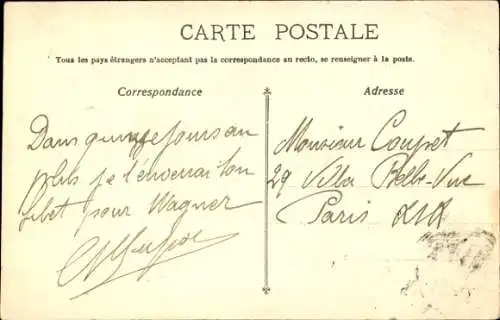 CARTE POSTALE
Tous les pays étrangers n'acceptant pas la correspondance au recto, se renseigner à la poste.
Correspondance
Dans quinze jours au
plus je t'enverrai ton
pour Wagner
Adresse
Monsieur Coupet
29 Villa Belle-Vue
Paris